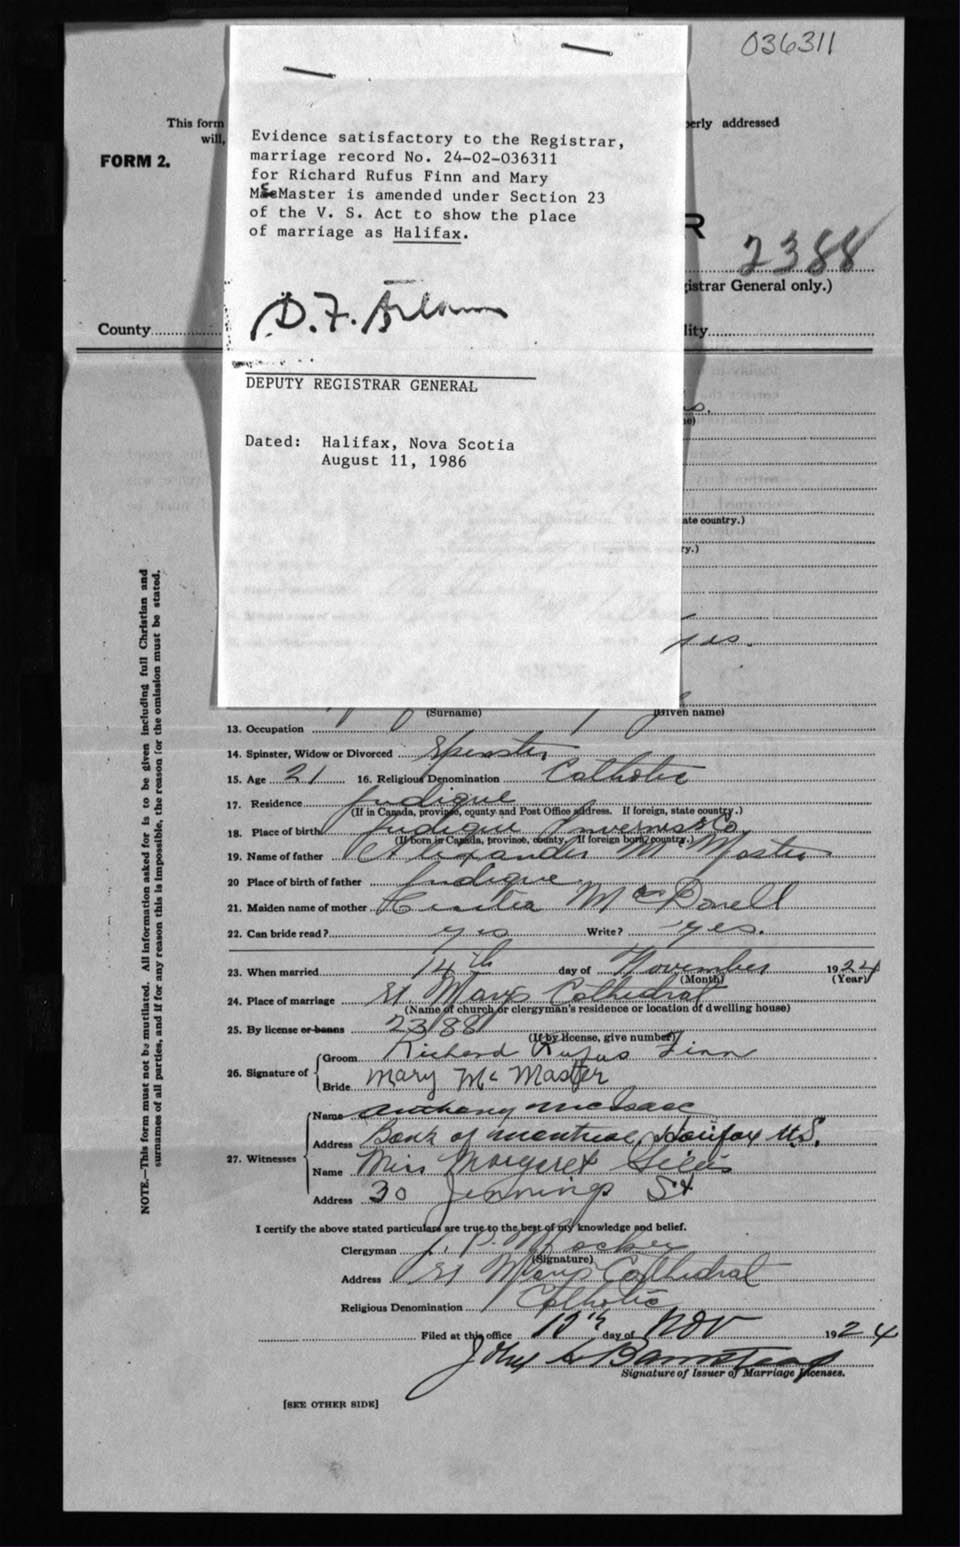 036311
This form
erly addressed
will,
FORM 2.
R
2388
istrar General only.)
County
lity
Evidence satisfactory to the Registrar,
marriage record No. 24-02-036311
for Richard Rufus Finn and Mary
McMaster is amended under Section 23
of the V. S. Act to show the place
of marriage as Halifax.
D. F.
DEPUTY REGISTRAR GENERAL
Dated: Halifax, Nova Scotia
August 11, 1986
e)
ate country.)
ry.)
yes.
(Surname) (Given name)
13. Occupation
14. Spinster, Widow or Divorced Spinster
15. Age 21 16. Religious Denomination Catholic
17. Residence Judique
(If in Canada, province, county and Post Office address. If foreign, state country.)
18. Place of birth Judique Inverness Co.
(If born in Canada, province, county. If foreign born, country.)
19. Name of father Alexander McMaster
20 Place of birth of father Judique
21. Maiden name of mother McDonell
22. Can bride read? yes Write? yes.
23. When married 14th day of November 1924
(Month) (Year)
24. Place of marriage St Marys Cathedral
(Name of church or clergyman's residence or location of dwelling house)
25. By license or banns 2388
(If by license, give number)
26. Signature of Groom Richard Rufus Finn
Bride Mary McMaster
27. Witnesses Name Anthony McIsaac
Address Bank of Montreal, Halifax N.S.
Name Miss Margaret Gillis
Address 30 Jennings St
I certify the above stated particulars are true to the best of my knowledge and belief.
Clergyman
(Signature)
Address St Marys Cathedral
Religious Denomination Catholic
Filed at this office 15th day of Nov 1924
John
Signature of Issuer of Marriage Licenses.
[SEE OTHER SIDE]
NOTE.—This form must not be mutilated. All information asked for is to be given including full Christian and
surnames of all parties, and if for any reason this is impossible, the reason for the omission must be stated.